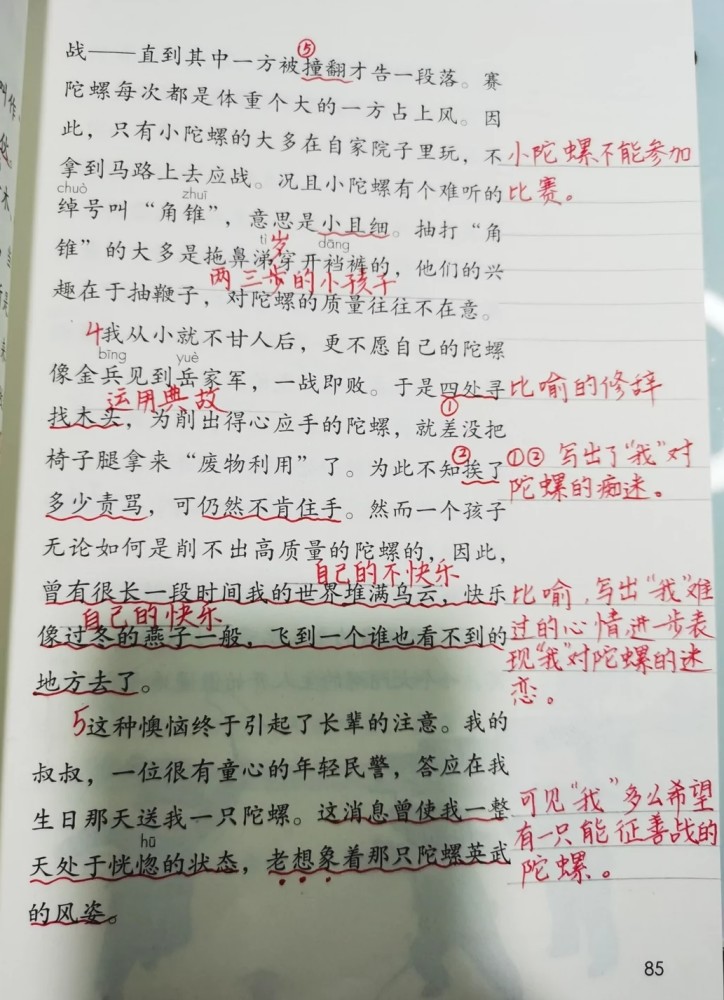 ⑤
战——直到其中一方被撞翻才告一段落。赛
陀螺每次都是体重个大的一方占上风。因
此，只有小陀螺的大多在自家院子里玩，不
小陀螺不能参加
拿到马路上去应战。况且小陀螺有个难听的
比赛。
chuò zhuī
绰号叫“角锥”，意思是小且细。抽打“角
tì 岁 dāng
锥”的大多是拖鼻涕穿开裆裤的，他们的兴
两三步的小孩子
趣在于抽鞭子，对陀螺的质量往往不在意。
4我从小就不甘人后，更不愿自己的陀螺
bīng yuè
像金兵见到岳家军，一战即败。于是四处寻
比喻的修辞
运用典故
①
找木头，为削出得心应手的陀螺，就差没把
②
椅子腿拿来“废物利用”了。为此不知挨了
①② 写出了“我”对
多少责骂，可仍然不肯住手。然而一个孩子
陀螺的痴迷。
无论如何是削不出高质量的陀螺的，因此，
自己的不快乐
曾有很长一段时间我的世界堆满乌云，快乐
比喻，写出“我”难
自己的快乐
像过冬的燕子一般，飞到一个谁也看不到的
过的心情，进一步表
地方去了。
现“我”对陀螺的迷
恋。
5这种懊恼终于引起了长辈的注意。我的
叔叔，一位很有童心的年轻民警，答应在我
生日那天送我一只陀螺。这消息曾使我一整
可见“我”多么希望
hū
天处于恍惚的状态，老想象着那只陀螺英武
有一只能征善战的
的风姿。
陀螺。
85